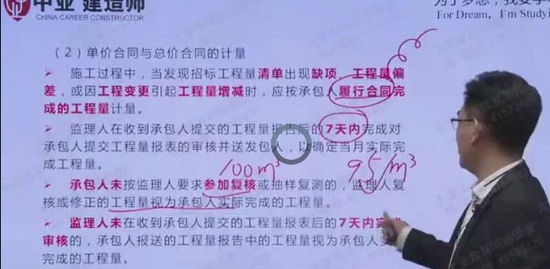 中业 建造师
CHINA CAREER CONSTRUCTOR
For Dream, I'm Study
（2）单价合同与总价合同的计量
➤ 施工过程中，当发现招标工程量清单出现缺项、工程量偏
差，或因工程变更引起工程量增减时，应按承包人履行合同完
成的工程量计量。
➤ 监理人在收到承包人提交的工程量报告后的7天内完成对
承包人提交工程量报表的审核并送发包人，以确定当月实际完
成工程量。
100m³ 95m³
➤ 承包人未按监理人要求参加复核或抽样复测的，监理人复
核或修正的工程量视为承包人实际完成的工程量。
➤ 监理人未在收到承包人提交的工程量报表后的7天内完
审核的，承包人报送的工程量报告中的工程量视为承包人实
完成的工程量。